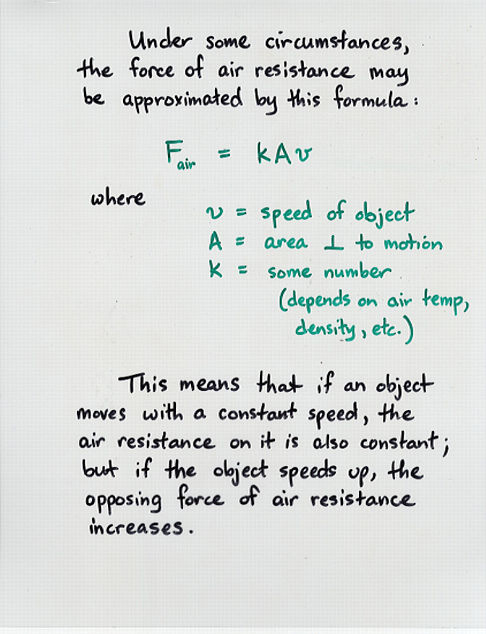 Under some circumstances,
the force of air resistance may
be approximated by this formula:
Fair = kAv
where
v = speed of object
A = area ⊥ to motion
k = some number
(depends on air temp,
density, etc.)
This means that if an object
moves with a constant speed, the
air resistance on it is also constant;
but if the object speeds up, the
opposing force of air resistance
increases.